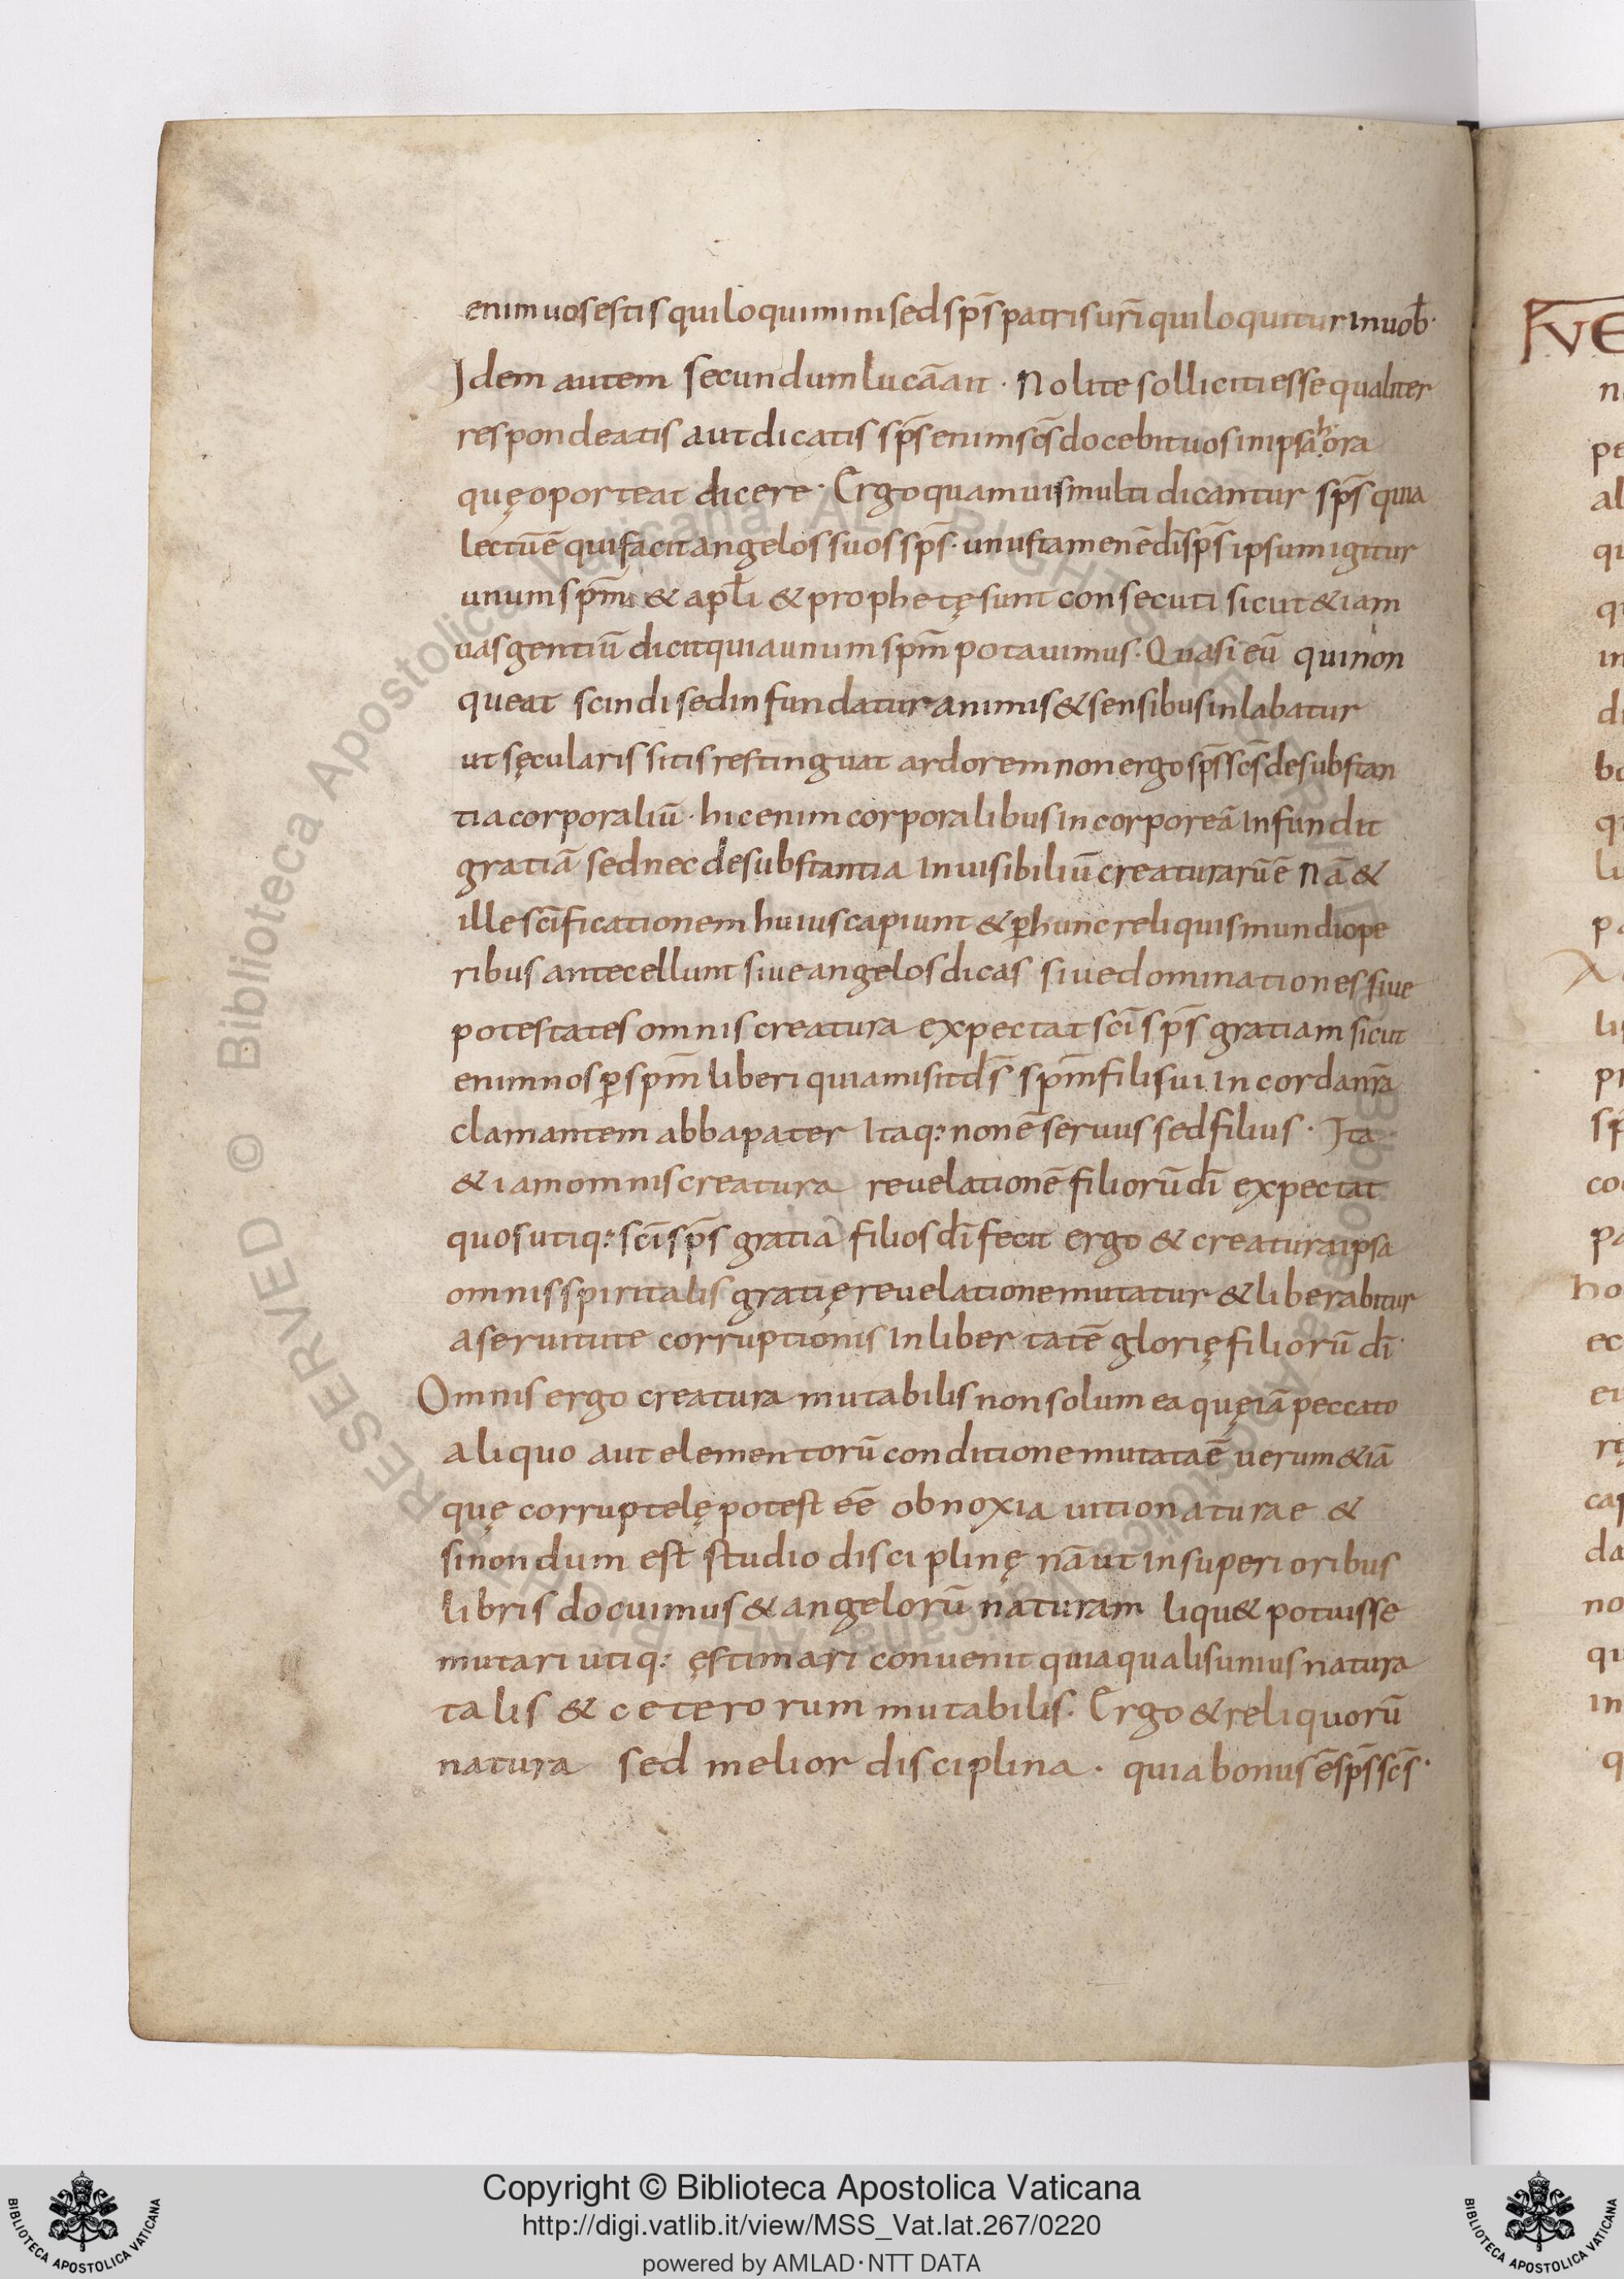 enim uos estis qui loquimini sed sp̄s patris ur̄i qui loquitur in uob̄·
Idem autem secundum lucā ait · Nolite solliciti esse qualiter
respondeatis aut dicatis sp̄s enim sc̄s docebit uos in ipsa hora
quę oporteat dicere · Ergo quamuis multi dicantur sp̄s quia
lectū ē qui facit angelos suos sp̄s · unus tamen ē dī sp̄s ipsum igitur
unum sp̄m & apl̄i & prophetę sunt consecuti sicut &iam
uas gentiū dicit quia unum sp̄m potauimus · Quasi eū qui non
queat scindi sed infundatur animis & sensibus inlabatur
ut sęcularis sitis restinguat ardorem non ergo sp̄s sc̄s de substan
tia corporaliū · hic enim corporalibus incorporeā infundit
gratiā sed nec de substantia inuisibiliū creaturarū ē Nā &
ille sc̄ificationem huius capiunt & ꝑ hunc reliquis mundi ope
ribus antecellunt siue angelos dicas siue dominationes siue
potestates omnis creatura expectat sc̄i sp̄s gratiam sicut
enim nos ꝑ sp̄m liberi quia misit ds̄ sp̄m fili sui in corda nr̄a
clamantem abba pater Itaq: non ē seruus sed filius · Ita
&iam omnis creatura reuelationē filiorū dī expectat
quos utiq: sc̄i sp̄s gratia filios dī fecit ergo & creatura ipsa
omnis spiritalis gratię reuelatione mutatur & liberabitur
a seruitute corruptionis in libertatē glorię filiorū dī·
Omnis ergo creatura mutabilis non solum ea quę iā peccato
aliquo aut elementorū conditione mutata ē uerum &iā
quę corruptelę potest eē obnoxia uitio naturae &
si nondum est studio disciplinę nā ut in superioribus
libris docuimus & angelorū naturam liqu& potuisse
mutari utiq: ęstimari conuenit quia qualis unius natura
talis & ceterorum mutabilis. Ergo & reliquorū
natura sed melior disciplina · quia bonus ē sp̄s sc̄s·
Copyright © Biblioteca Apostolica Vaticana
http://digi.vatlib.it/view/MSS_Vat.lat.267/0220
powered by AMLAD · NTT DATA